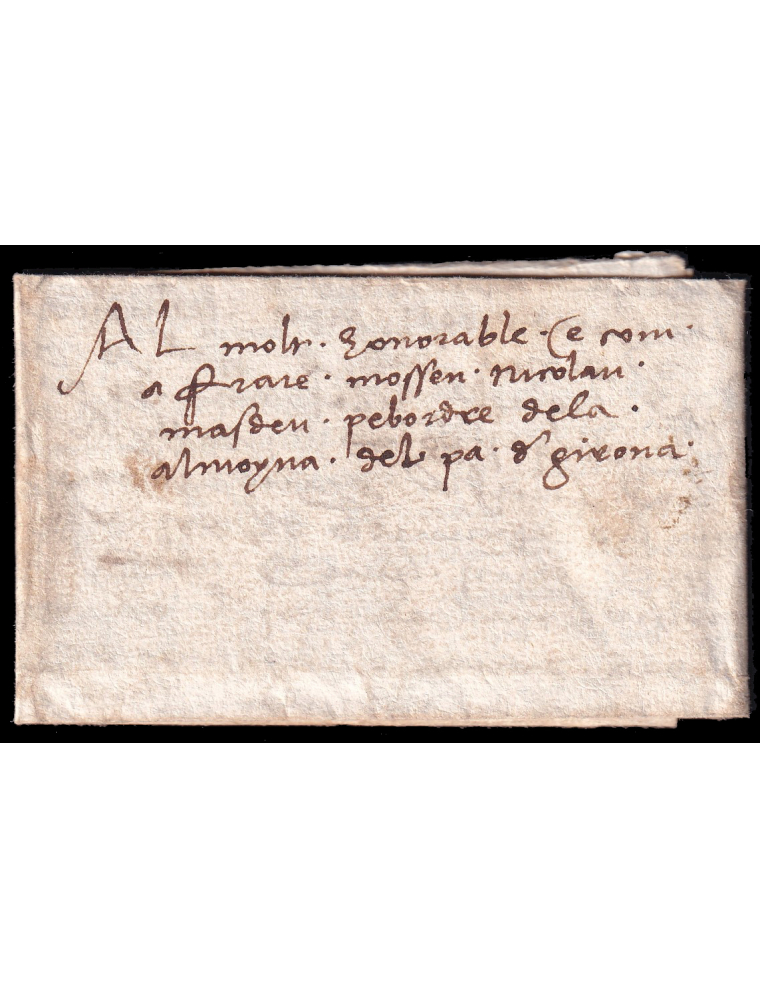 Al molt · honorable · (e com ·
a frare · mossen · nicolau ·
masdeu · pebordre dela ·
almoyna · del pa · d' girona ·